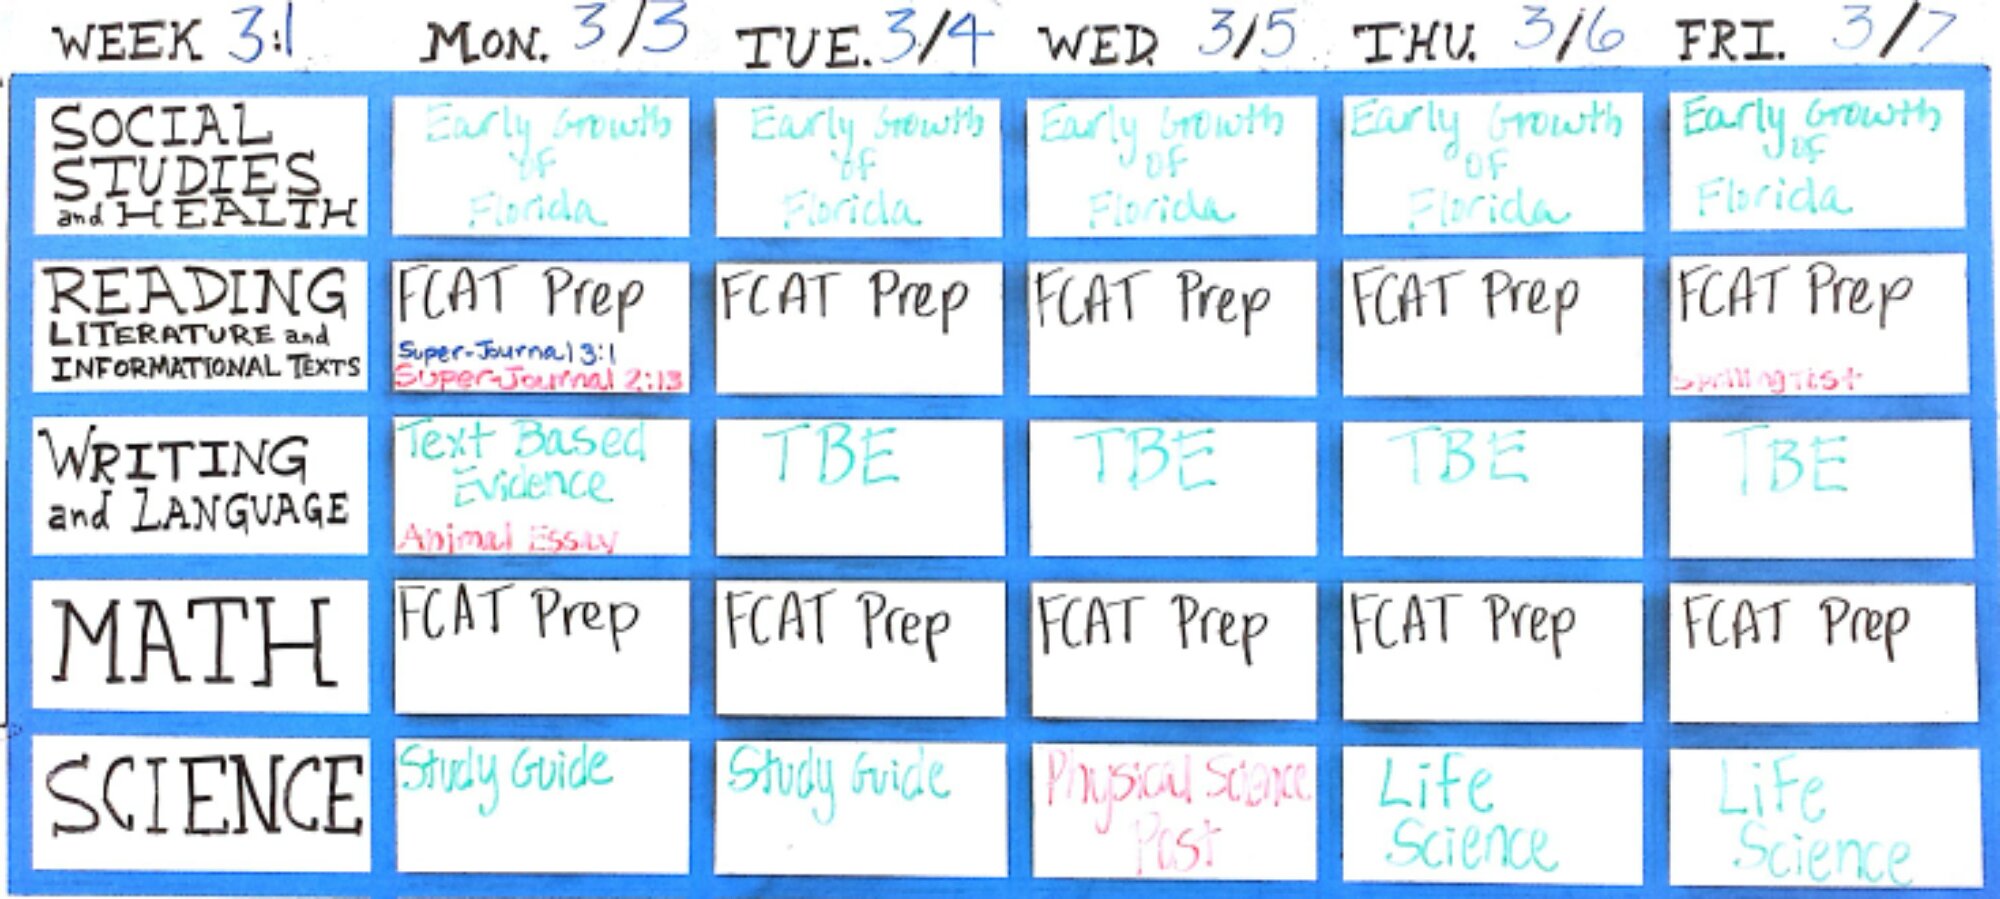 WEEK 3:1 MON. 3/3 TUE. 3/4 WED. 3/5 THU. 3/6 FRI. 3/7
SOCIAL
STUDIES
and HEALTH
Early Growth
of
Florida
Early Growth
of
Florida
Early Growth
of
Florida
Early Growth
of
Florida
Early Growth
of
Florida
READING
LITERATURE and
INFORMATIONAL TEXTS
FCAT Prep
Super-Journal 3:1
Super-Journal 2:13
FCAT Prep
FCAT Prep
FCAT Prep
FCAT Prep
Spelling Test
WRITING
and LANGUAGE
Text Based
Evidence
Animal Essay
TBE
TBE
TBE
TBE
MATH
FCAT Prep
FCAT Prep
FCAT Prep
FCAT Prep
FCAT Prep
SCIENCE
Study Guide
Study Guide
Physical Science
Post
Life
Science
Life
Science